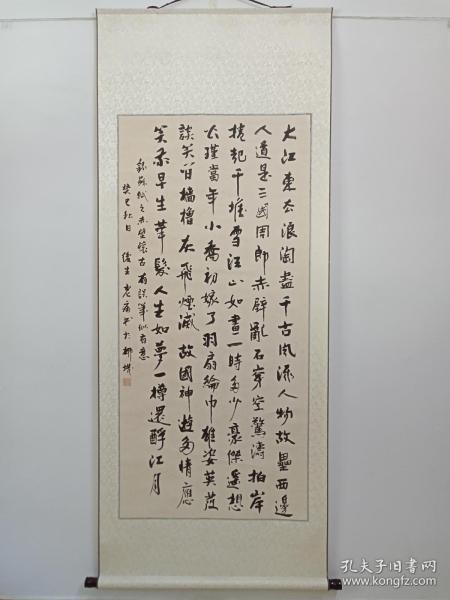 大江東去浪淘盡千古風流人物故壘西邊
人道是三國周郎赤壁亂石穿空驚濤拍岸
捲起千堆雪江山如畫一時多少豪傑遙想
公瑾當年小喬初嫁了羽扇綸巾雄姿英發
談笑間檣櫓灰飛煙滅故國神遊多情應
笑我早生華髮人生如夢一樽還酹江月
錄蘇軾之赤壁懷古有誤筆似有意
癸巳秋日
孔夫子旧书网
www.kongfz.com